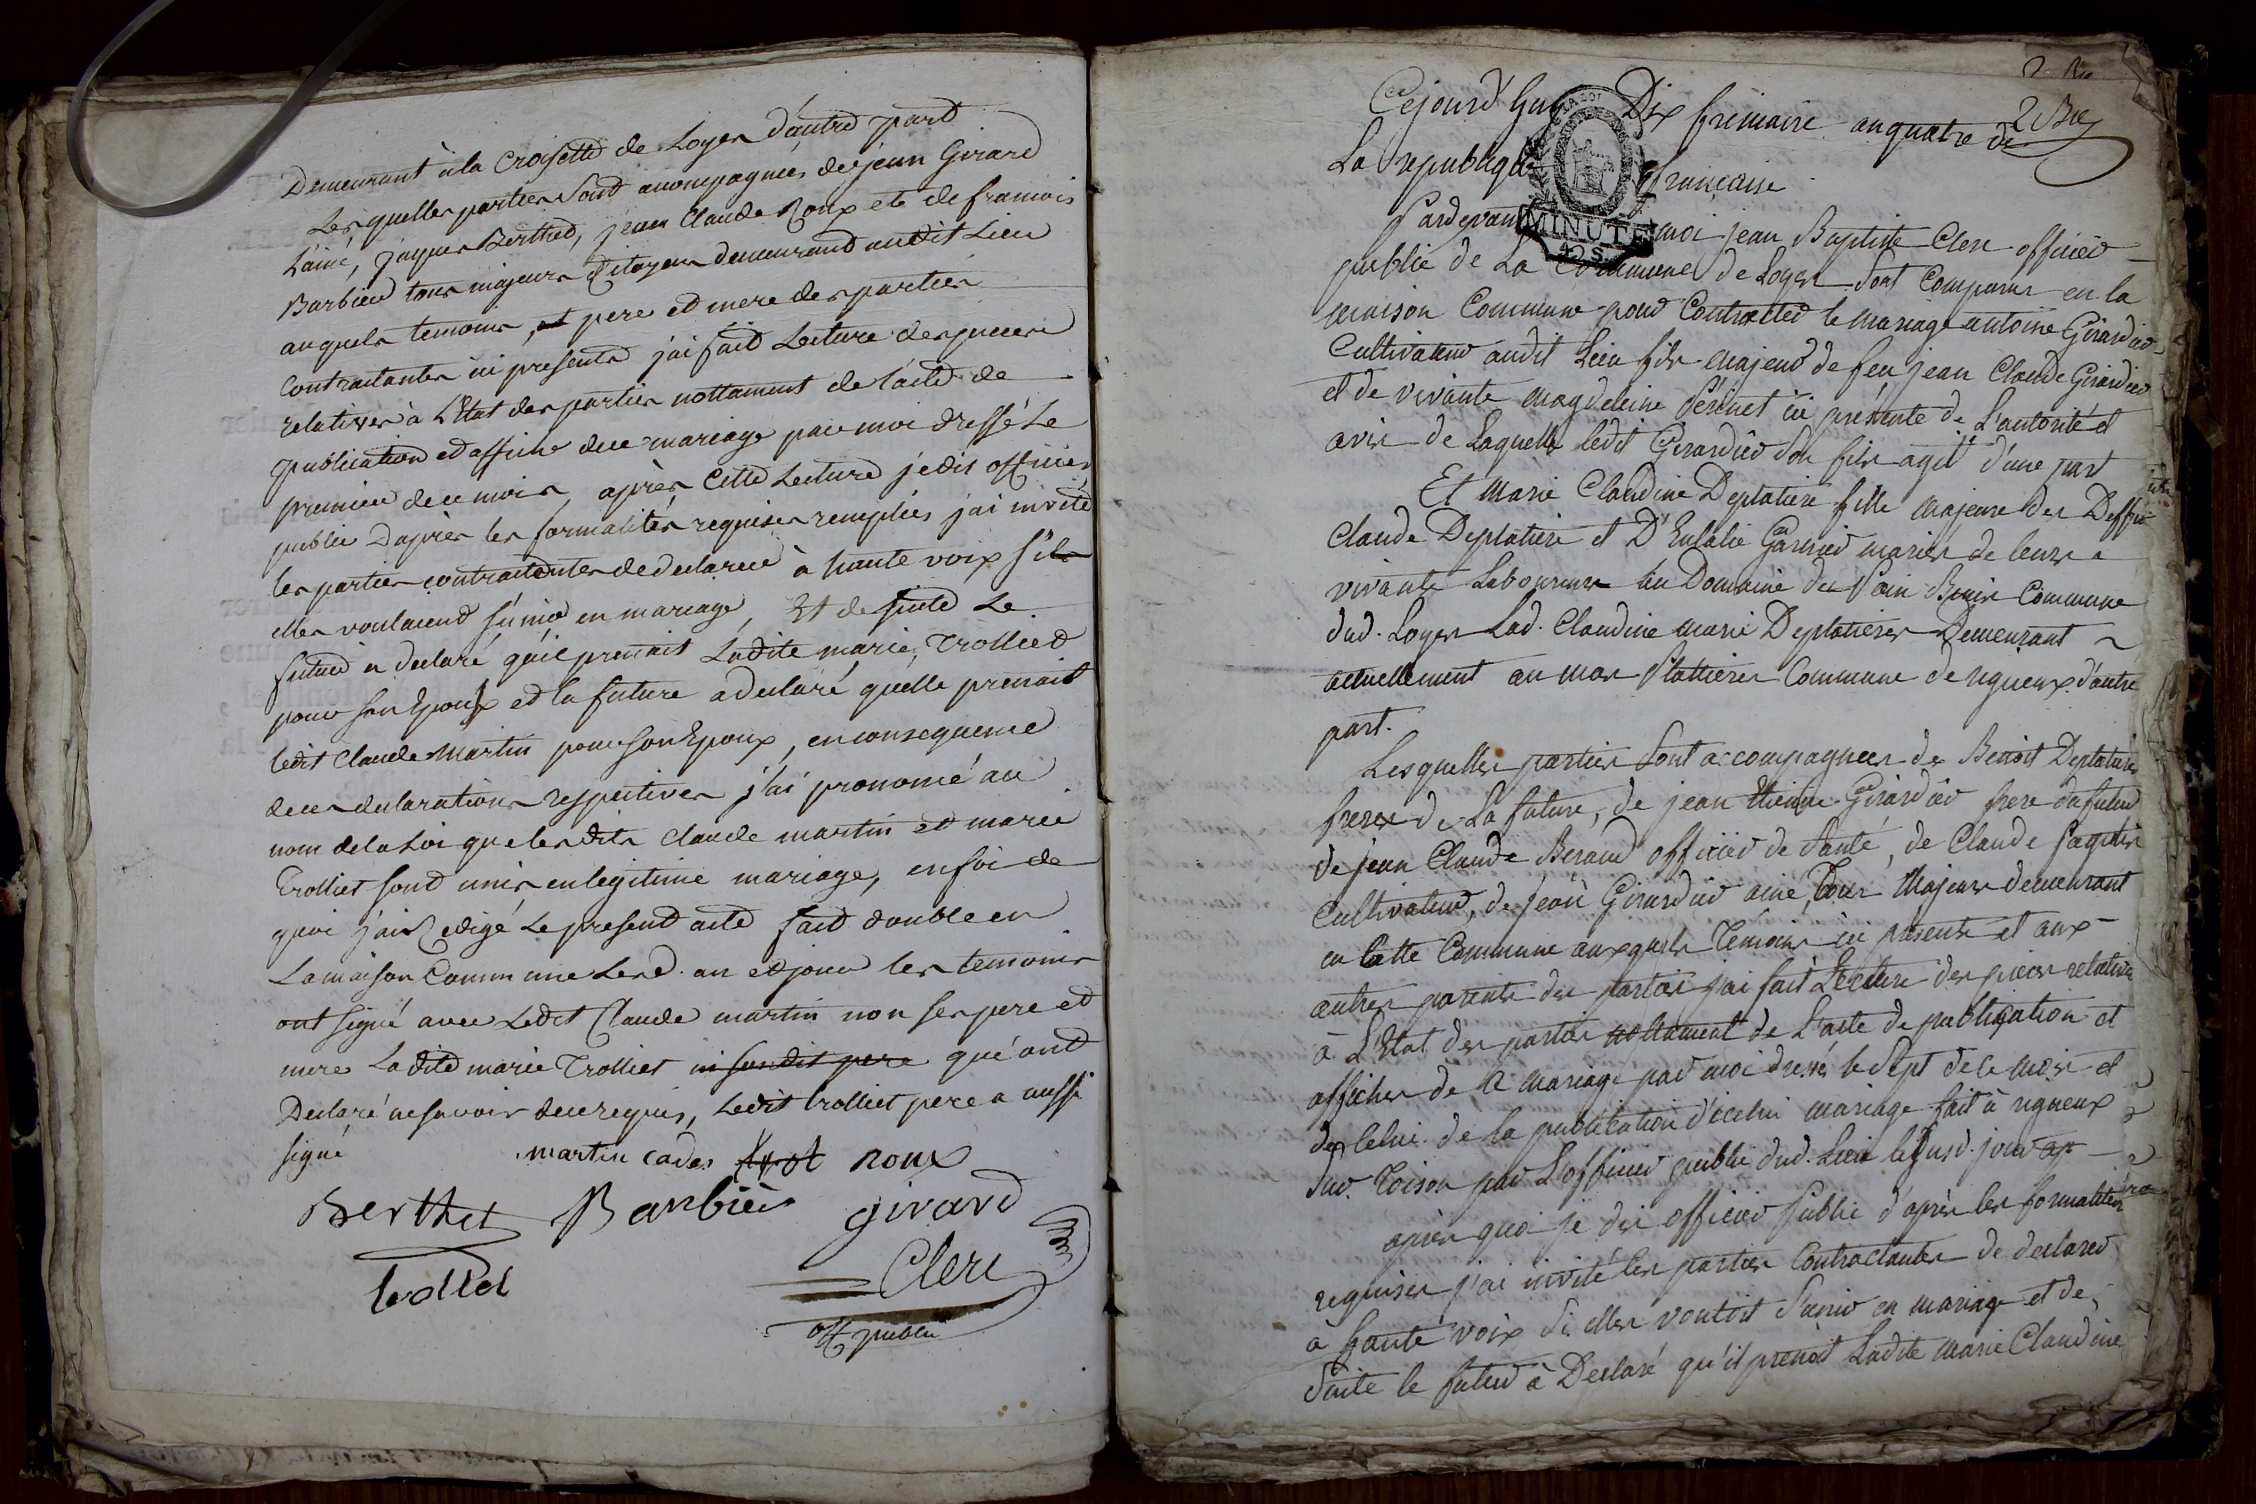 Demeurant à la Croisette de Loyes d'autre part
Les quelles parties sont accompagnées de jean Girard
L'ainé, jaques Berthet, jean Claude Roux et de francois
Barbier tous majeurs Citoyens demeurant audit Lieu
auquels temoins, et pere et mere des parties
Contractantes ici presents j'ai fait Lecture des pieces
relatives à L'Etat des parties nottament de l'acte de
publication et affiche de ce mariage par moi dressé le
premier de ce mois, après cette Lecture je dit officier
public D'après les formalités requises remplies j'ai invité
les parties contractantes de declarer à haute voix si
elles vouloient s'unir en mariage, Et de suite Le
futur a declaré qu'il prenait Ladite marie Trolliet
pour son Epouse et la future a declaré quelle prenait
ledit Claude Martin pour son Epoux, en consequence
de ces declarations respectives j'ai prononcé au
nom de la Loi que lesdits Claude martin et marie
Trolliet sont unis en legitime mariage, en foi de
quoi j'ai Redigé Le present acte fait double en
La maison Commune Lesd. an et jour les temoins
ont signé avec Ledit Claude martin non ses pere et
mere Ladite marie Trolliet ni sondit pere qui ont
Declaré ne savoir de ce requis, Ledit trolliet pere a aussi
signé martin cadet roux
Berthet Barbier girard
trolliet Clerc
off public
2 Bre
Cejourd'huy Dix frimaire an quatre de
La republique française
MINUTE
Pardevant moi jean Baptiste Clerc officier
public de La Commune de Loyes sont Comparus en la
maison Commune pour Contracter le mariage antoine Girardier
Cultivateur audit Lieu fils majeur de feu jean Claude Girardier
et de vivante magdeleine Perenet ici présente de L'autorité et
avis de Laquelle ledit Girardier son fils agit d'une part
Et Marie Claudine Deplatiere fille majeure des Deffts
Claude Deplatiere et D'Eulalie Garnier mariés de leurs
vivants Laboureurs au Domaine du Pain Benis Commune
dud. Loyes Lad. Claudine marie Deplatieres Demeurant
actuellement au mas Plattieres Commune de rigneux d'autre
part.
Lesquelles parties sont accompagnees de Benoit Deplatieres
freres de La future, de jean Etienne Girardier frere du futur
de jean Claude Beraud officier de Santé, de Claude
Cultivateur, de jean Girardier ainé, Tous Majeurs demeurant
en Cette Commune auxquels Témoins ici présents et aux
autres parents des parties j'ai fait Lecture des pieces relatives
à L'Etat des parties nottament de L'acte de publication et
affiches de ce mariage par moi dressé le Sept de ce mois et
de Celui de la publication d'icelui mariage fait à rigneux
par L'officier public dud. Lieu le susd. jour
apres quoi je dis officier Public d'après les formalités
requises j'ai invité les parties Contractantes de declarer
à haute voix Si elles vouloit S'unir en mariage et de
Suite le futur à Declaré qu'il prenoit Ladite Marie Claudine